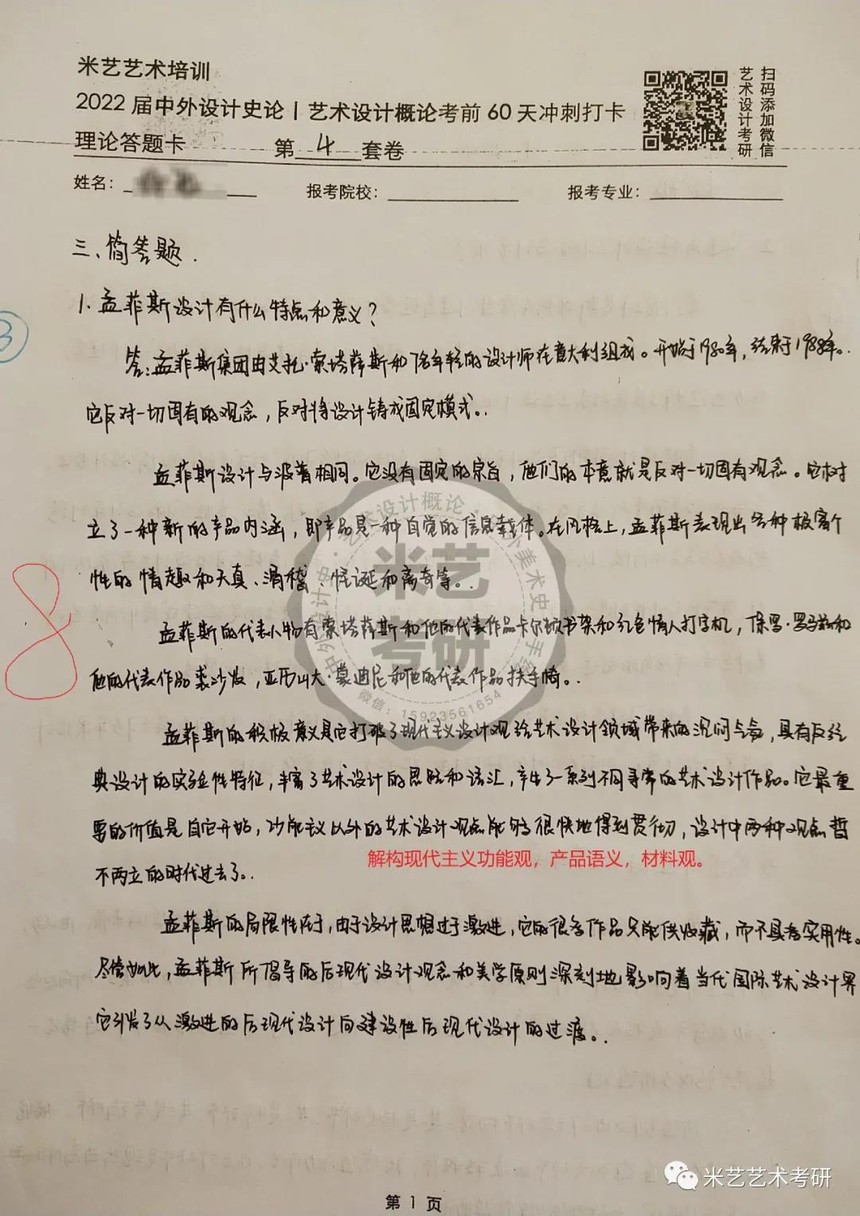 米艺艺术培训
2022 届中外设计史论 | 艺术设计概论考前 60 天冲刺打卡
理论答题卡 第 4 套卷
扫码添加微信
艺术设计考研
姓名: 报考院校: 报考专业:
三、简答题.
1. 孟菲斯设计有什么特点和意义?
3
答:孟菲斯集团由艾托·索塔萨斯和7名年轻的设计师在意大利组成。开始于1980年,结束于1988年。
它反对一切固有的观念,反对将设计铸成固定模式。
孟菲斯设计与波普相同。它没有固定的宗旨,他们的本意就是反对一切固有观念。它树
立了一种新的产品内涵,即产品是一种自觉的信息载体。在风格上,孟菲斯表现出各种极富个
性的情趣和天真、滑稽、怪诞和离奇等。
8
孟菲斯的代表人物有索塔萨斯和他的代表作品卡尔顿书架和红色情人打字机,
他的代表作品 沙发,亚历山大·蒙迪尼和他的代表作品扶手椅。
孟菲斯的积极意义是它打破了现代主义设计观给艺术设计领域带来的沉闷 ,具有反经
典设计的实验性特征,丰富了艺术设计的思路和语汇,产生了一系列不同寻常的艺术设计作品。它最重
要的价值是自它开始,功能主义以外的艺术设计观点能够很快地得到贯彻,设计中两种观点誓
不两立的时代过去了。
解构现代主义功能观,产品语义,材料观。
孟菲斯的局限性在于,由于设计思想过于激进,它的很多作品只能供收藏,而不具有实用性。
尽管如此,孟菲斯所倡导的后现代设计观念和美学原则深刻地影响着当代国际艺术设计界
它引发了从激进的后现代设计向建设性后现代设计的过渡。
米艺
考研
微信:15923561654
第 1 页
米艺艺术考研